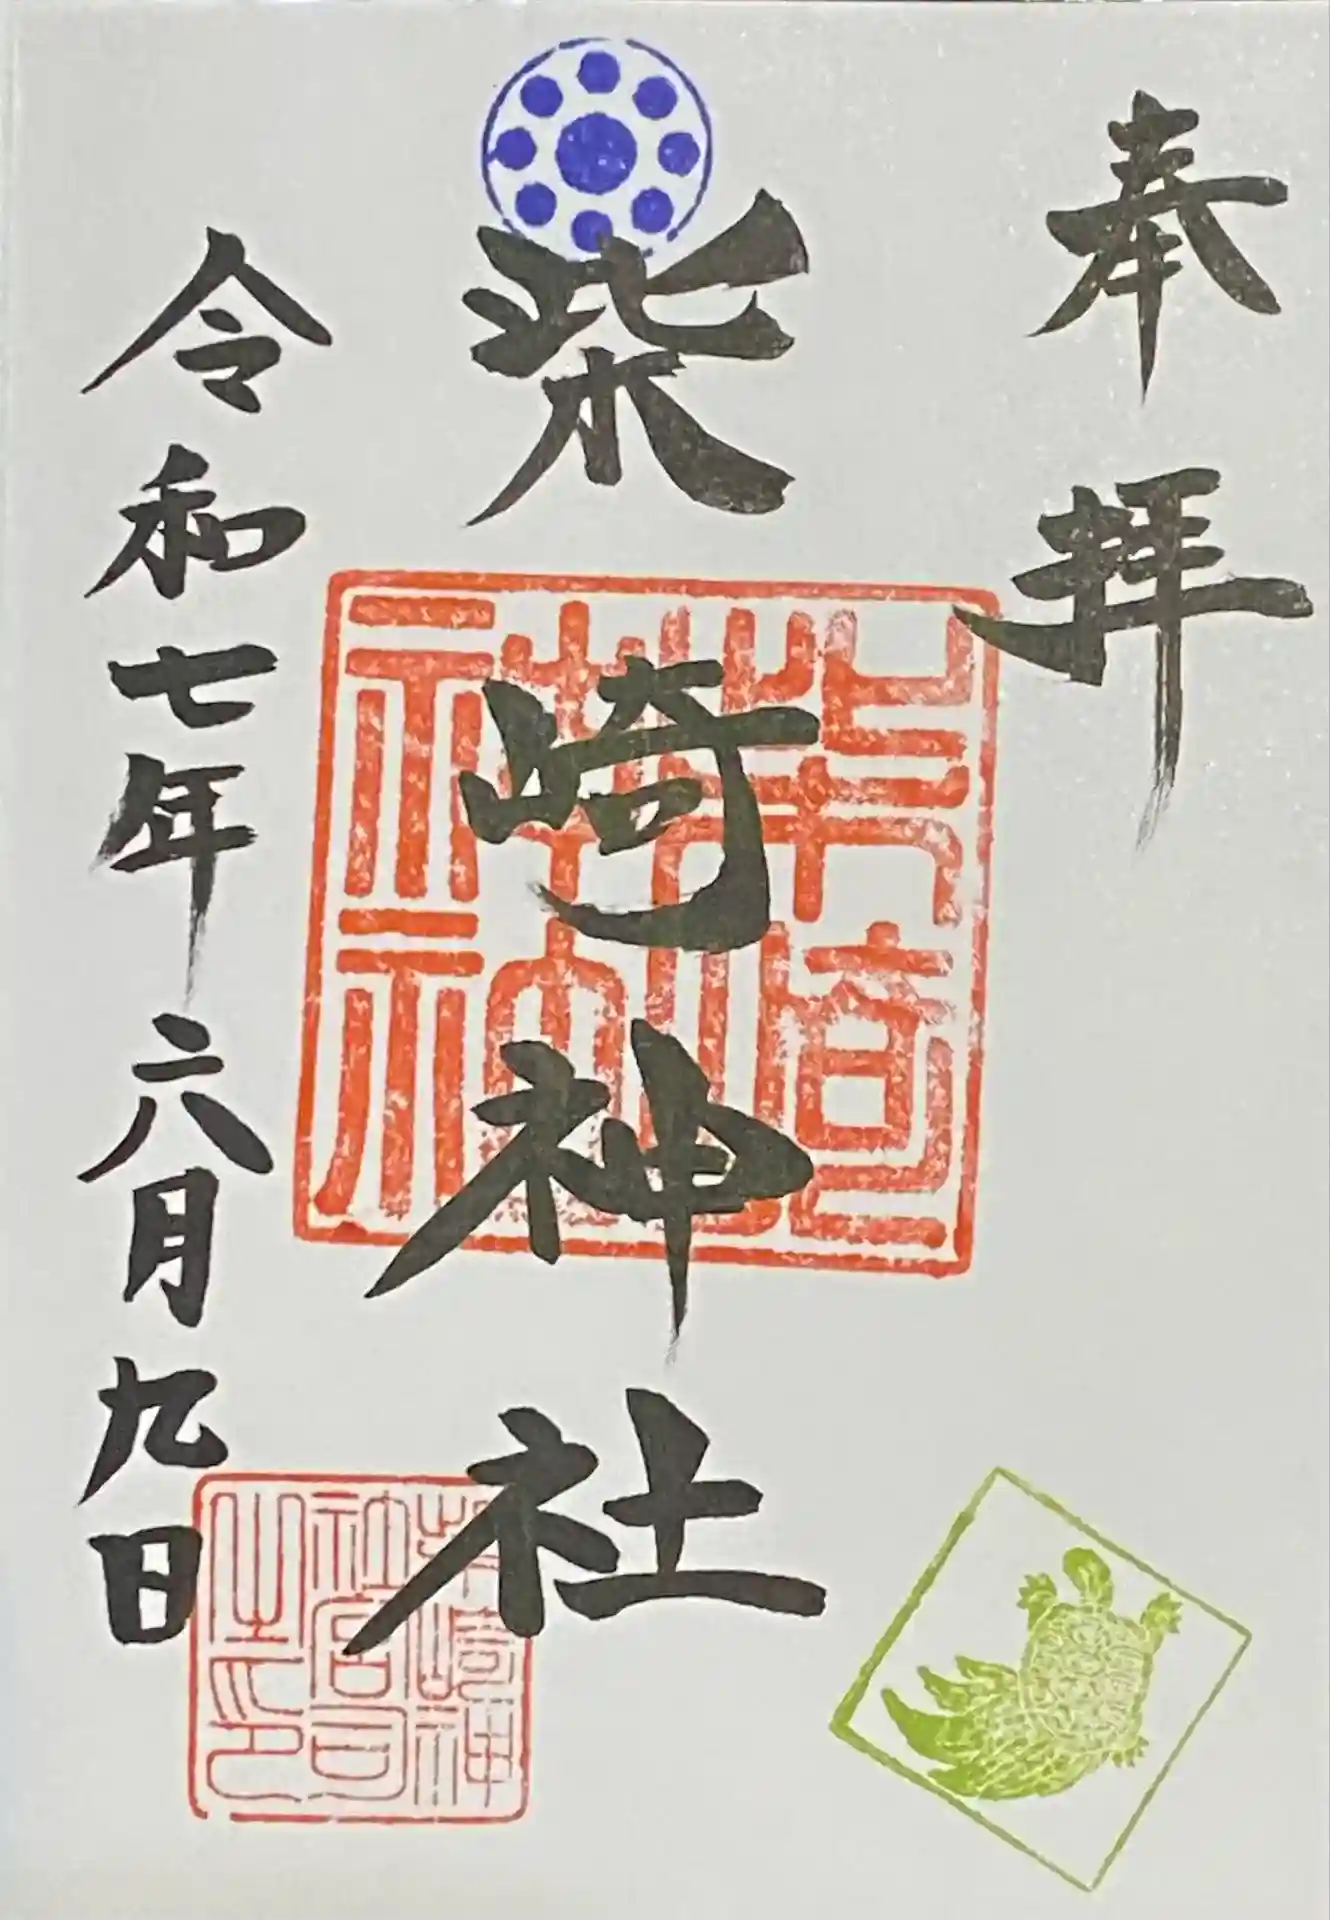 奉拝
柴崎神社
令和七年六月九日
柴崎神社
神社宮司之印